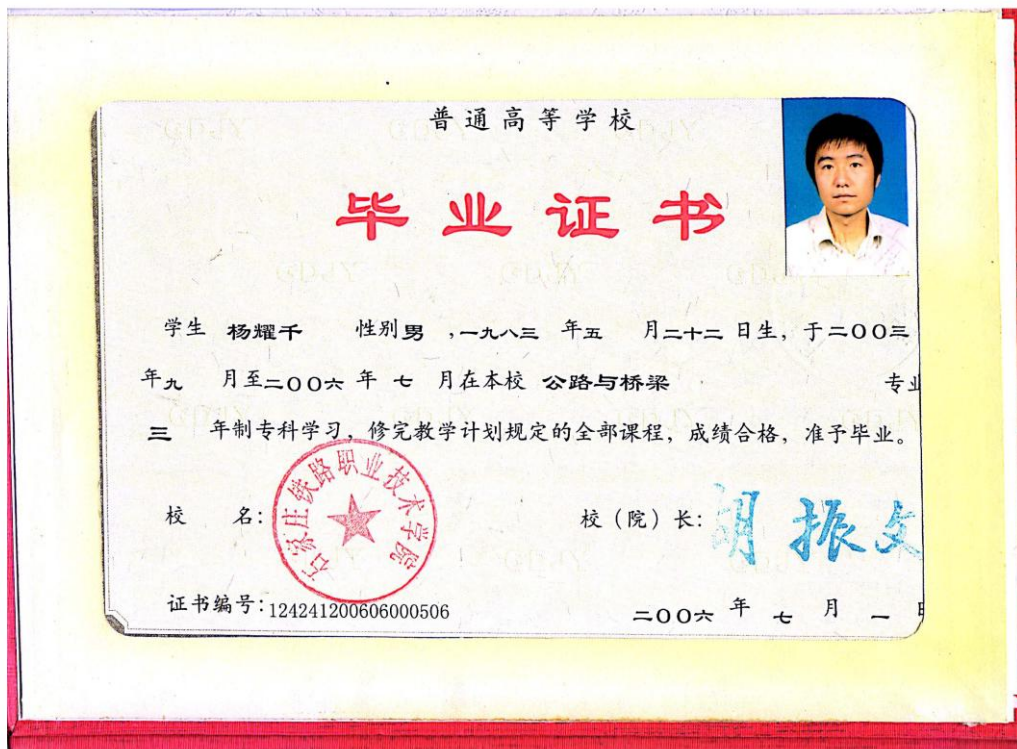 普通高等学校
毕业证书
学生 杨耀千 性别男,一九八三 年五 月二十二 日生,于二〇〇三
年九 月至二〇〇六 年 七 月在本校 公路与桥梁 专业
三 年制专科学习,修完教学计划规定的全部课程,成绩合格,准予毕业。
校 名:
石家庄铁路职业技术学院
校(院)长: 胡振文
证书编号:124241200606000506
二〇〇六 年 七 月 一 日